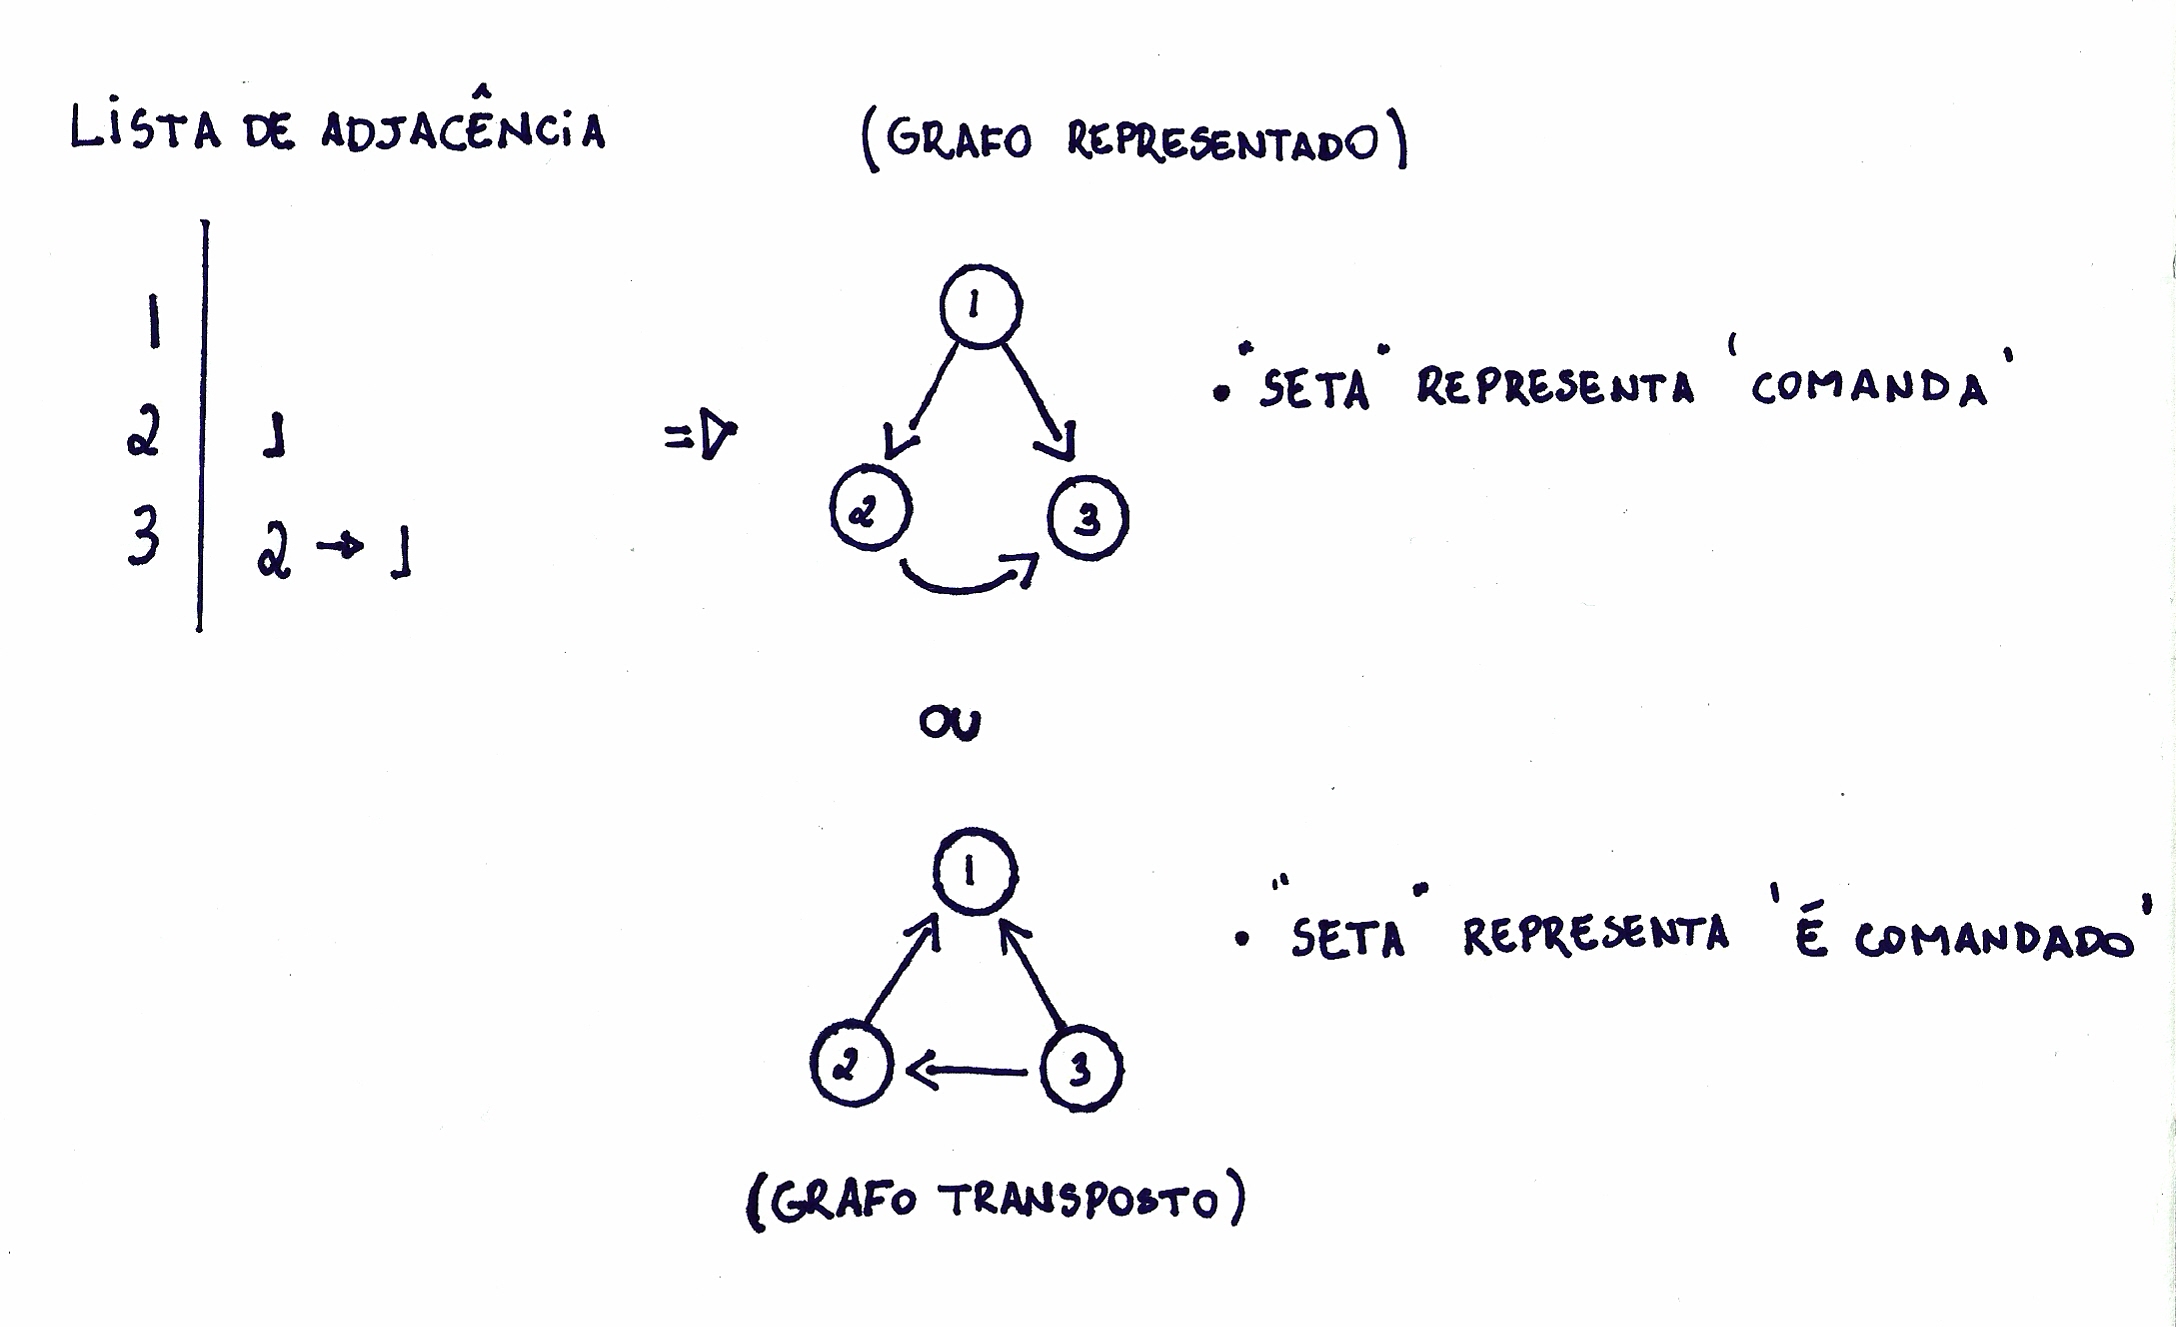 LISTA DE ADJACÊNCIA
(GRAFO REPRESENTADO)
1
2 1
3 2 → 1
=>
1
2 3
• "SETA" REPRESENTA 'COMANDA'
OU
1
2 3
• "SETA" REPRESENTA 'É COMANDADO'
(GRAFO TRANSPOSTO)